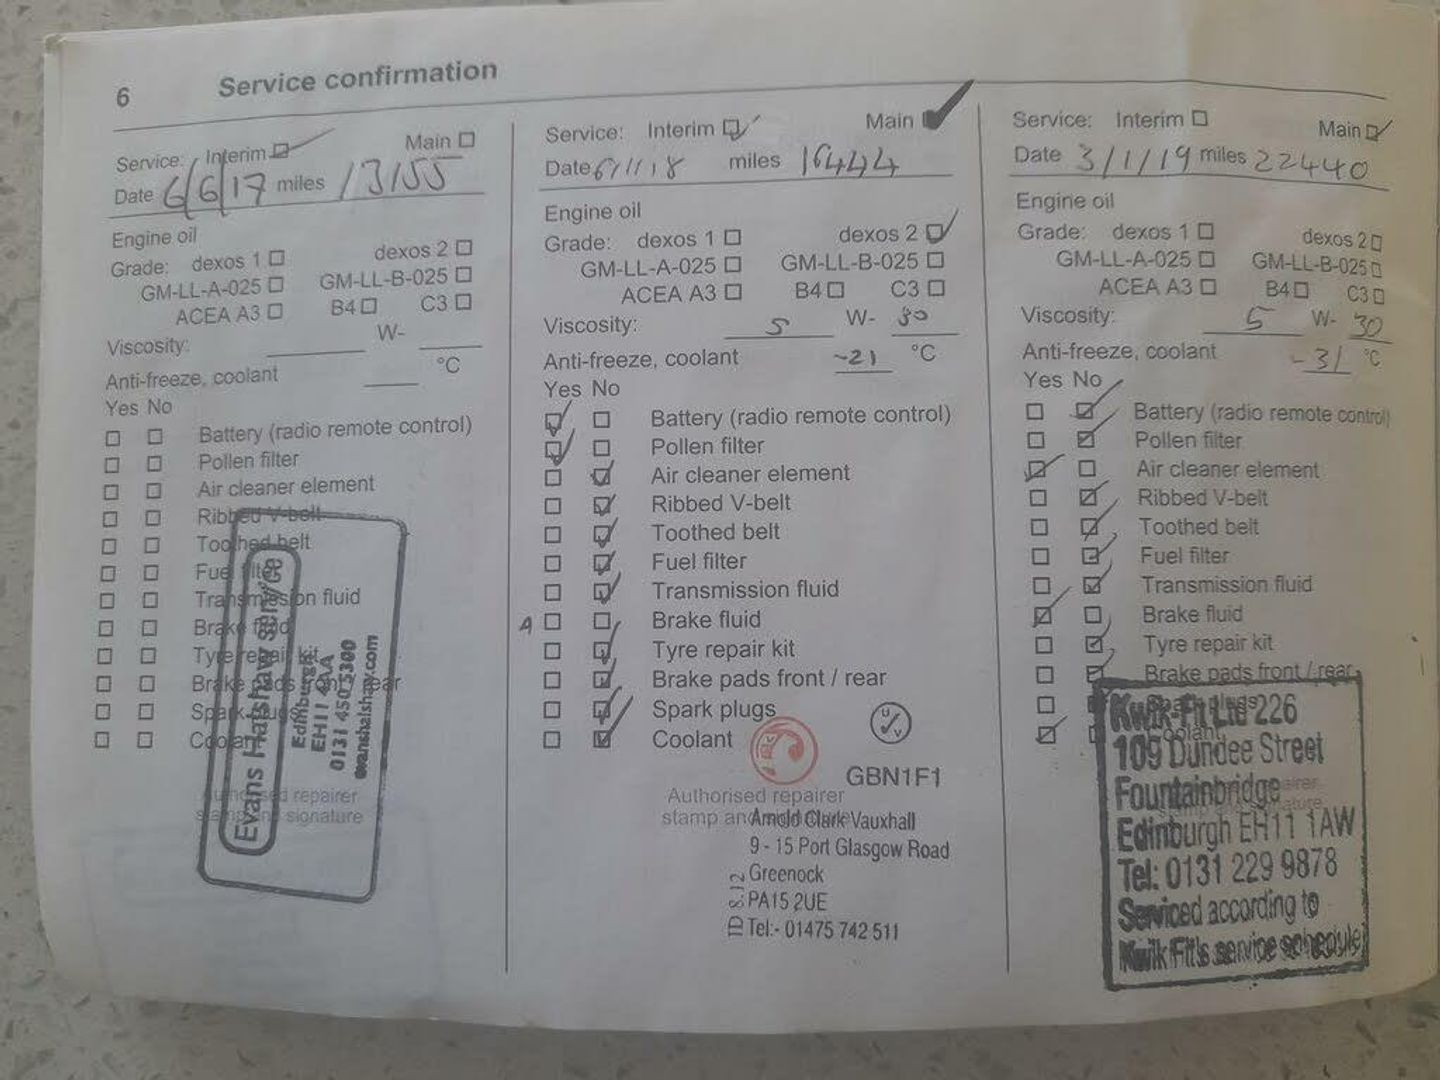 6 Service confirmation
Service: Interim Main
Date 6/6/17 miles 13155
Engine oil
Grade: dexos 1 dexos 2
GM-LL-A-025 GM-LL-B-025
ACEA A3 B4 C3
Viscosity: W-
Anti-freeze, coolant °C
Yes No
Battery (radio remote control)
Pollen filter
Air cleaner element
Ribbed V-belt
Toothed belt
Fuel filter
Transmission fluid
Brake fluid
Tyre repair kit
Brake pads front / rear
Spark plugs
Coolant
Authorised repairer
stamp and signature
Evans Halshaw service
Edinburgh
EH11 4AA
0131 450 5300
evanshalshaw.com
Service: Interim Main
Date 6/1/18 miles 16444
Engine oil
Grade: dexos 1 dexos 2
GM-LL-A-025 GM-LL-B-025
ACEA A3 B4 C3
Viscosity: 5 W- 30
Anti-freeze, coolant -21 °C
Yes No
Battery (radio remote control)
Pollen filter
Air cleaner element
Ribbed V-belt
Toothed belt
Fuel filter
Transmission fluid
A Brake fluid
Tyre repair kit
Brake pads front / rear
Spark plugs
Coolant
GBN1F1
Authorised repairer
stamp and
Arnold Clark Vauxhall
9 - 15 Port Glasgow Road
Greenock
PA15 2UE
Tel:- 01475 742 511
Service: Interim Main
Date 3/1/19 miles 22440
Engine oil
Grade: dexos 1 dexos 2
GM-LL-A-025 GM-LL-B-025
ACEA A3 B4 C3
Viscosity: 5 W- 30
Anti-freeze, coolant -31 °C
Yes No
Battery (radio remote control)
Pollen filter
Air cleaner element
Ribbed V-belt
Toothed belt
Fuel filter
Transmission fluid
Brake fluid
Tyre repair kit
Brake pads front / rear
Spark plugs
Coolant
Kwik-Fit Ltd 226
109 Dundee Street
Fountainbridge
Edinburgh EH11 1AW
Tel: 0131 229 9878
Serviced according to
Kwik Fit's service schedule